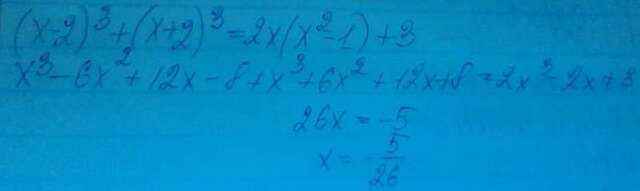 (x-2)³+(x+2)³=2x(x²-1)+3
x³-6x²+12x-8+x³+6x²+12x+8=2x³-2x+3
26x=-5
x=-5/26